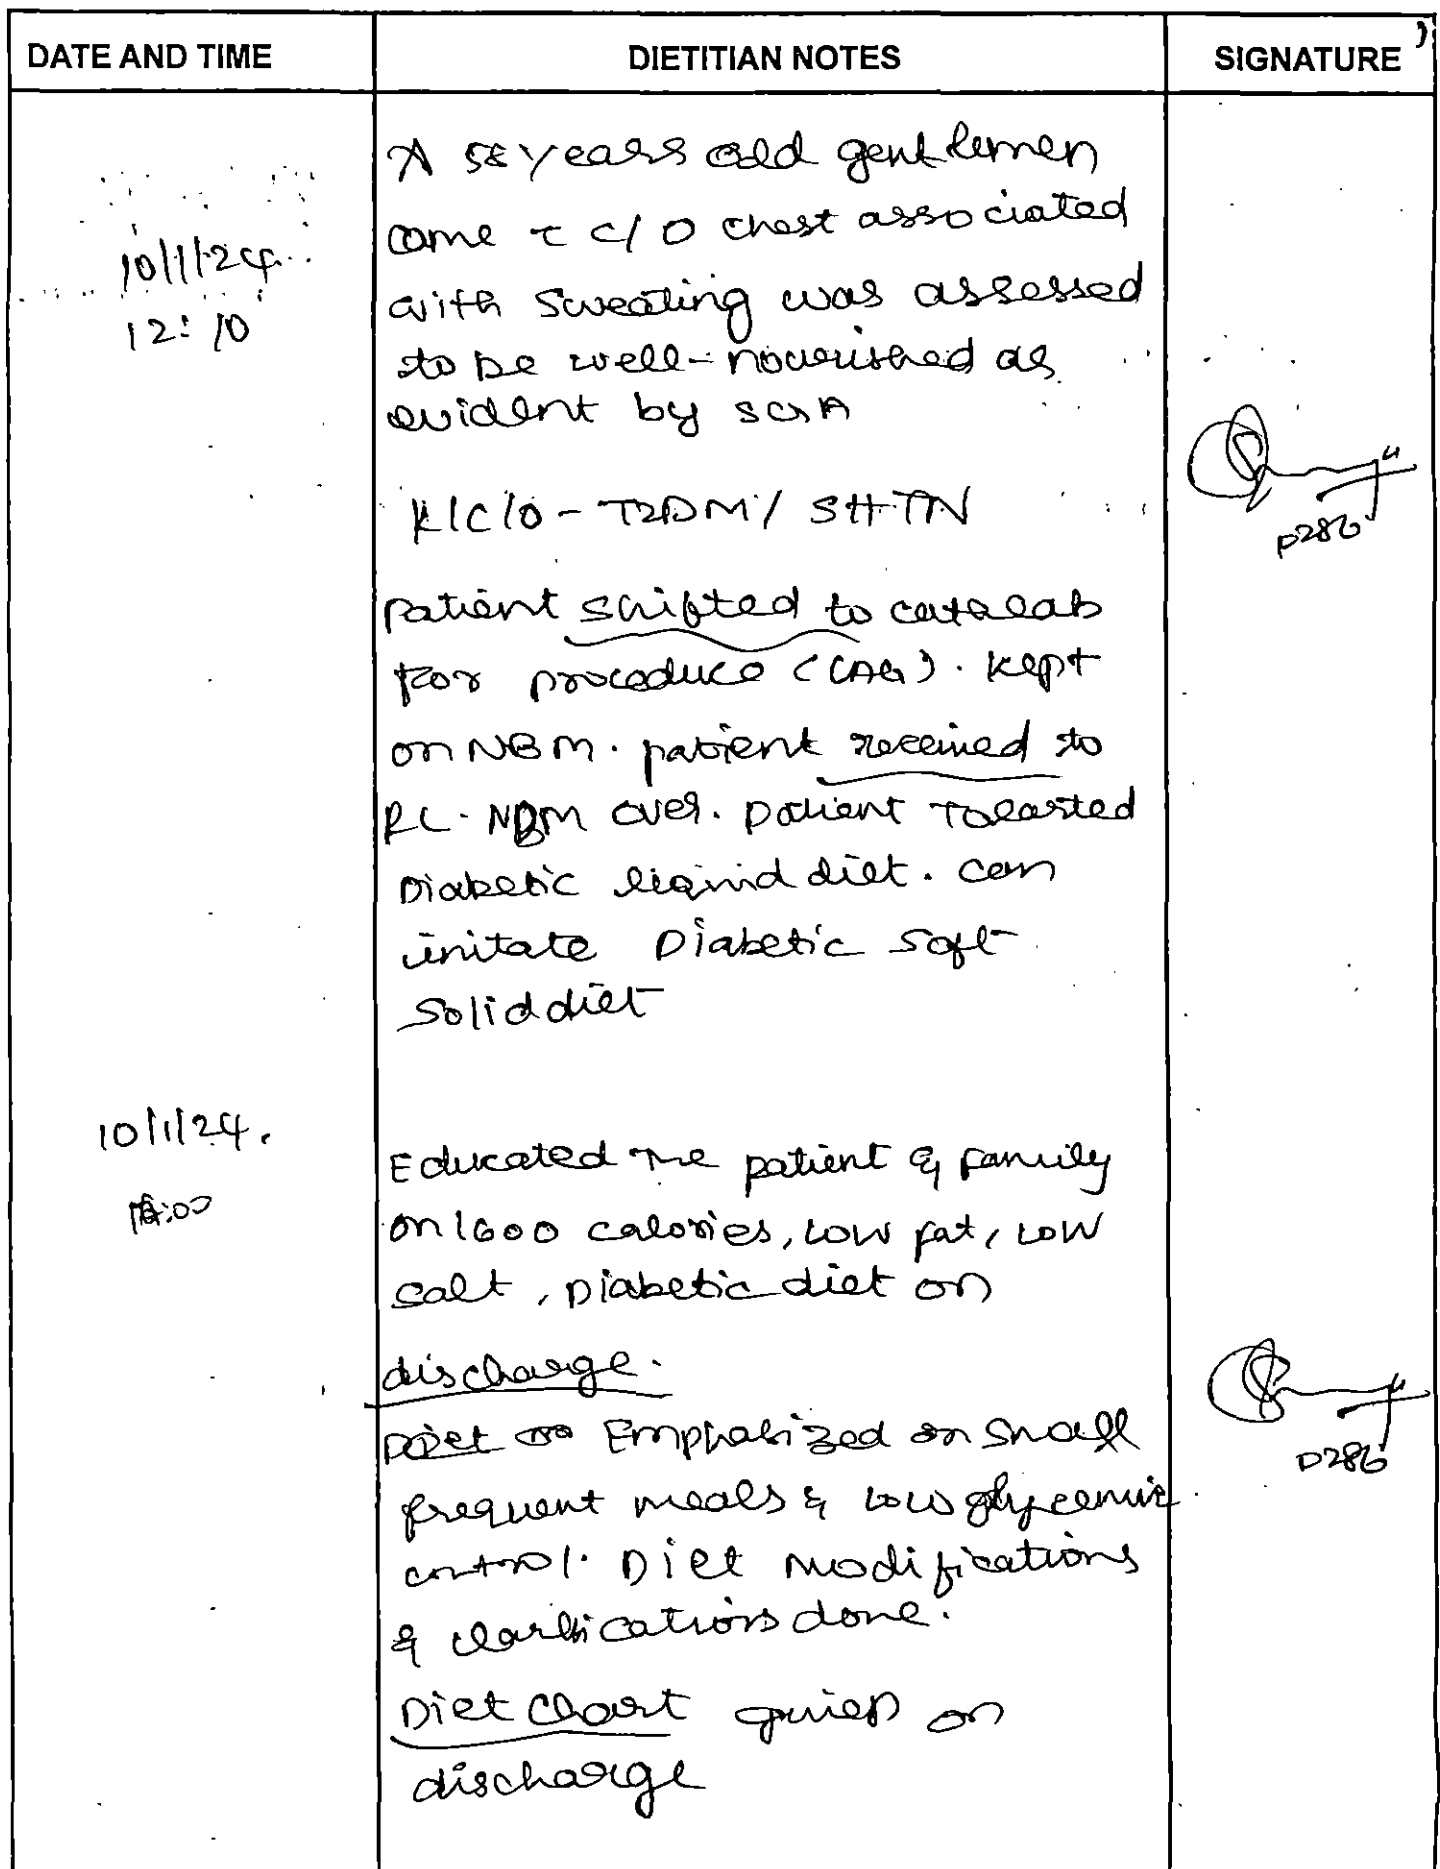 DATE AND TIME DIETITIAN NOTES SIGNATURE
A 58 years old gentlemen
10/1/24
12:10
came c c/o chest associated
with sweating was assessed
to be well-nourished as
evident by SGA
K/C/O - T2DM / SHTN
D286
patient shifted to cathlab
for procedure (CAG). Kept
on NBM. patient received to
RL. NBM over. patient Tolearted
Diabetic liquid diet. can
initate Diabetic soft
solid diet
10/1/24.
Educated the patient & family
on 1600 calories, low fat, low
salt, Diabetic diet on
discharge.
Emphasized on small
D286
frequent meals & low glycemic
control. Diet modifications
& clarifications done.
Diet Chart given on
discharge